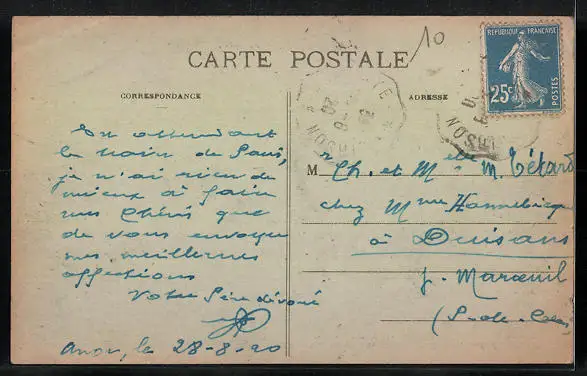 10
CARTE POSTALE
REPUBLIQUE FRANÇAISE
25c
POSTES
CORRESPONDANCE
ADRESSE
En attendant
le train de Paris,
je n'ai rien de
mieux à faire
mes Chéris que
de vous envoyer
mes meilleures
affections
Votre Père dévoué
Anor, le 28-8-20
M Ch. et M elle M. Tétard
chez Mme Hannebicque
à Duisans
p. Marœuil
(P-de-Calais)